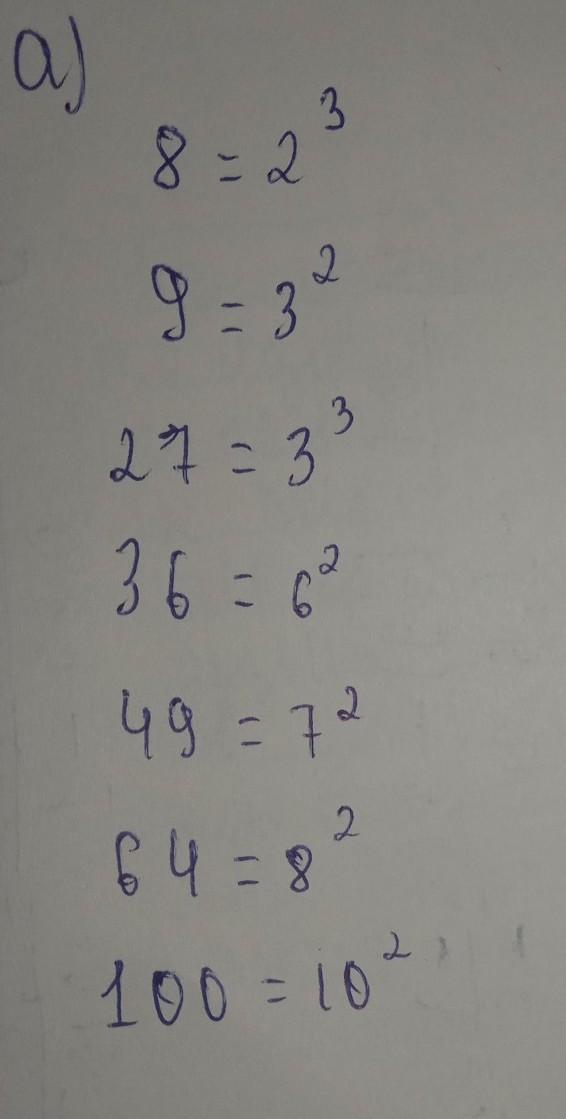 а)
8 = 2³
9 = 3²
27 = 3³
36 = 6²
49 = 7²
64 = 8²
100 = 10²